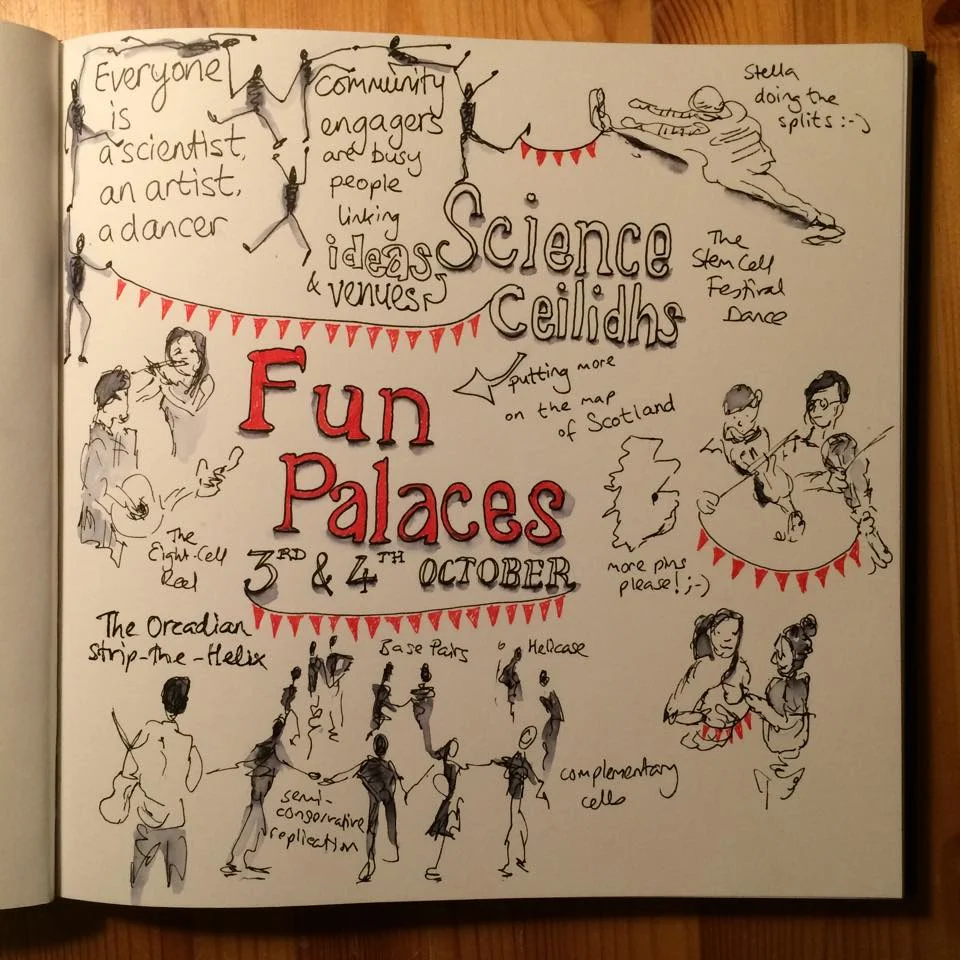 Everyone
is
a scientist,
an artist,
a dancer
Community
engagers
are busy
people
linking
ideas
& venues
Science
Ceilidhs
Stella
doing the
splits :-)
The
Stem Cell
Festival
Dance
Fun
Palaces
3RD & 4TH OCTOBER
putting more
on the map
of Scotland
more pins
please! ;-)
The
Eight-Cell
Reel
The Orcadian
Strip-the-Helix
Base Pairs
Helicase
semi-
conservative
replication
complementary
cells